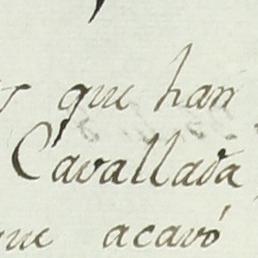 que han
Cavallada
que acavó